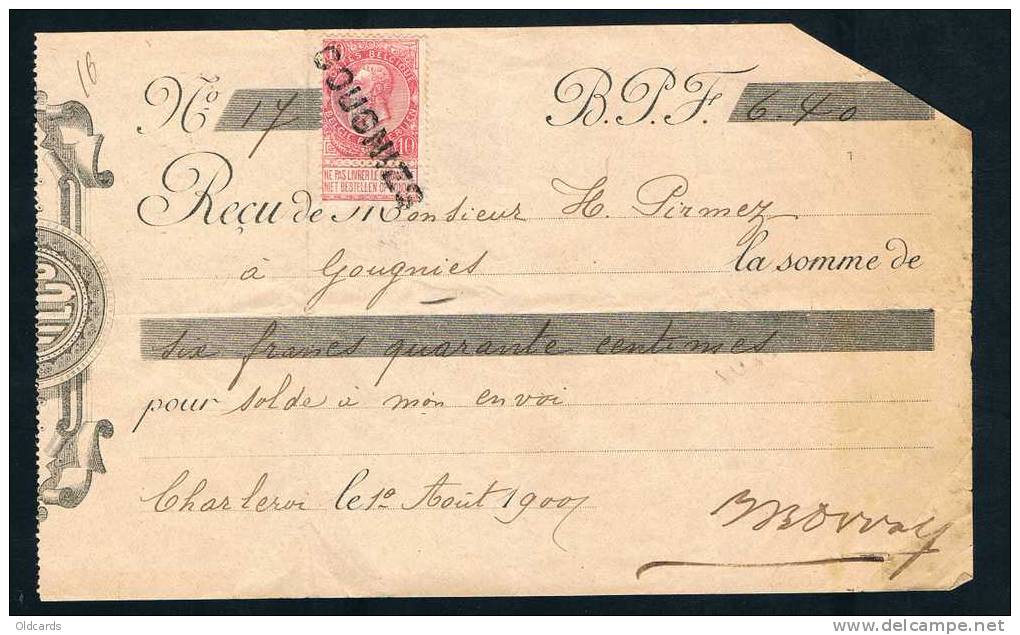 16
No. 17 B.P.F. 6.40
10 POSTES BELGIQUE
BELGIE 10
GOUGNIES
NE PAS LIVRER LE
NIET BESTELLEN OP
Reçu de Monsieur H. Pirmez
à Gougnies la somme de
six francs quarante centimes
pour solde à mon envoi
Charleroi le 1o Août 1900
Oldcards www.delcampe.net